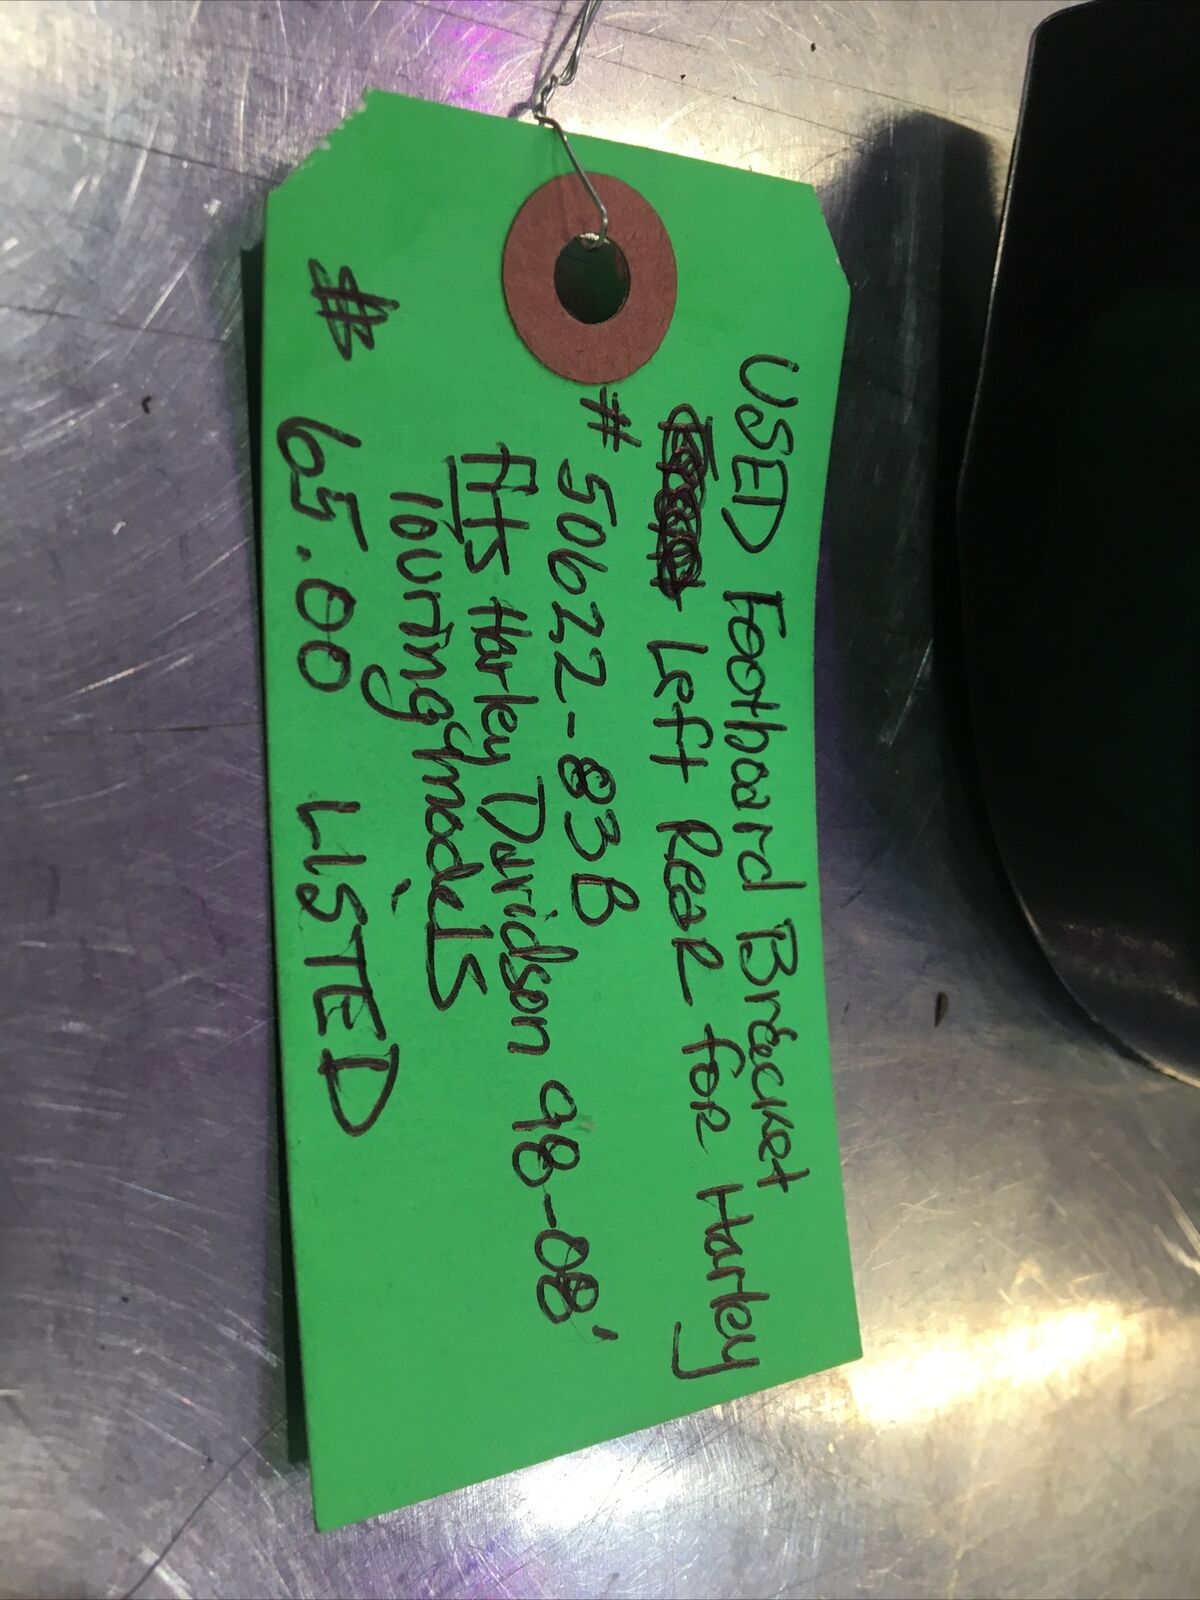 USED Footboard Bracket
Left Rear for Harley
# 50622-83B
fits Harley Davidson 98-08'
Touring models
$ 65.00 LISTED